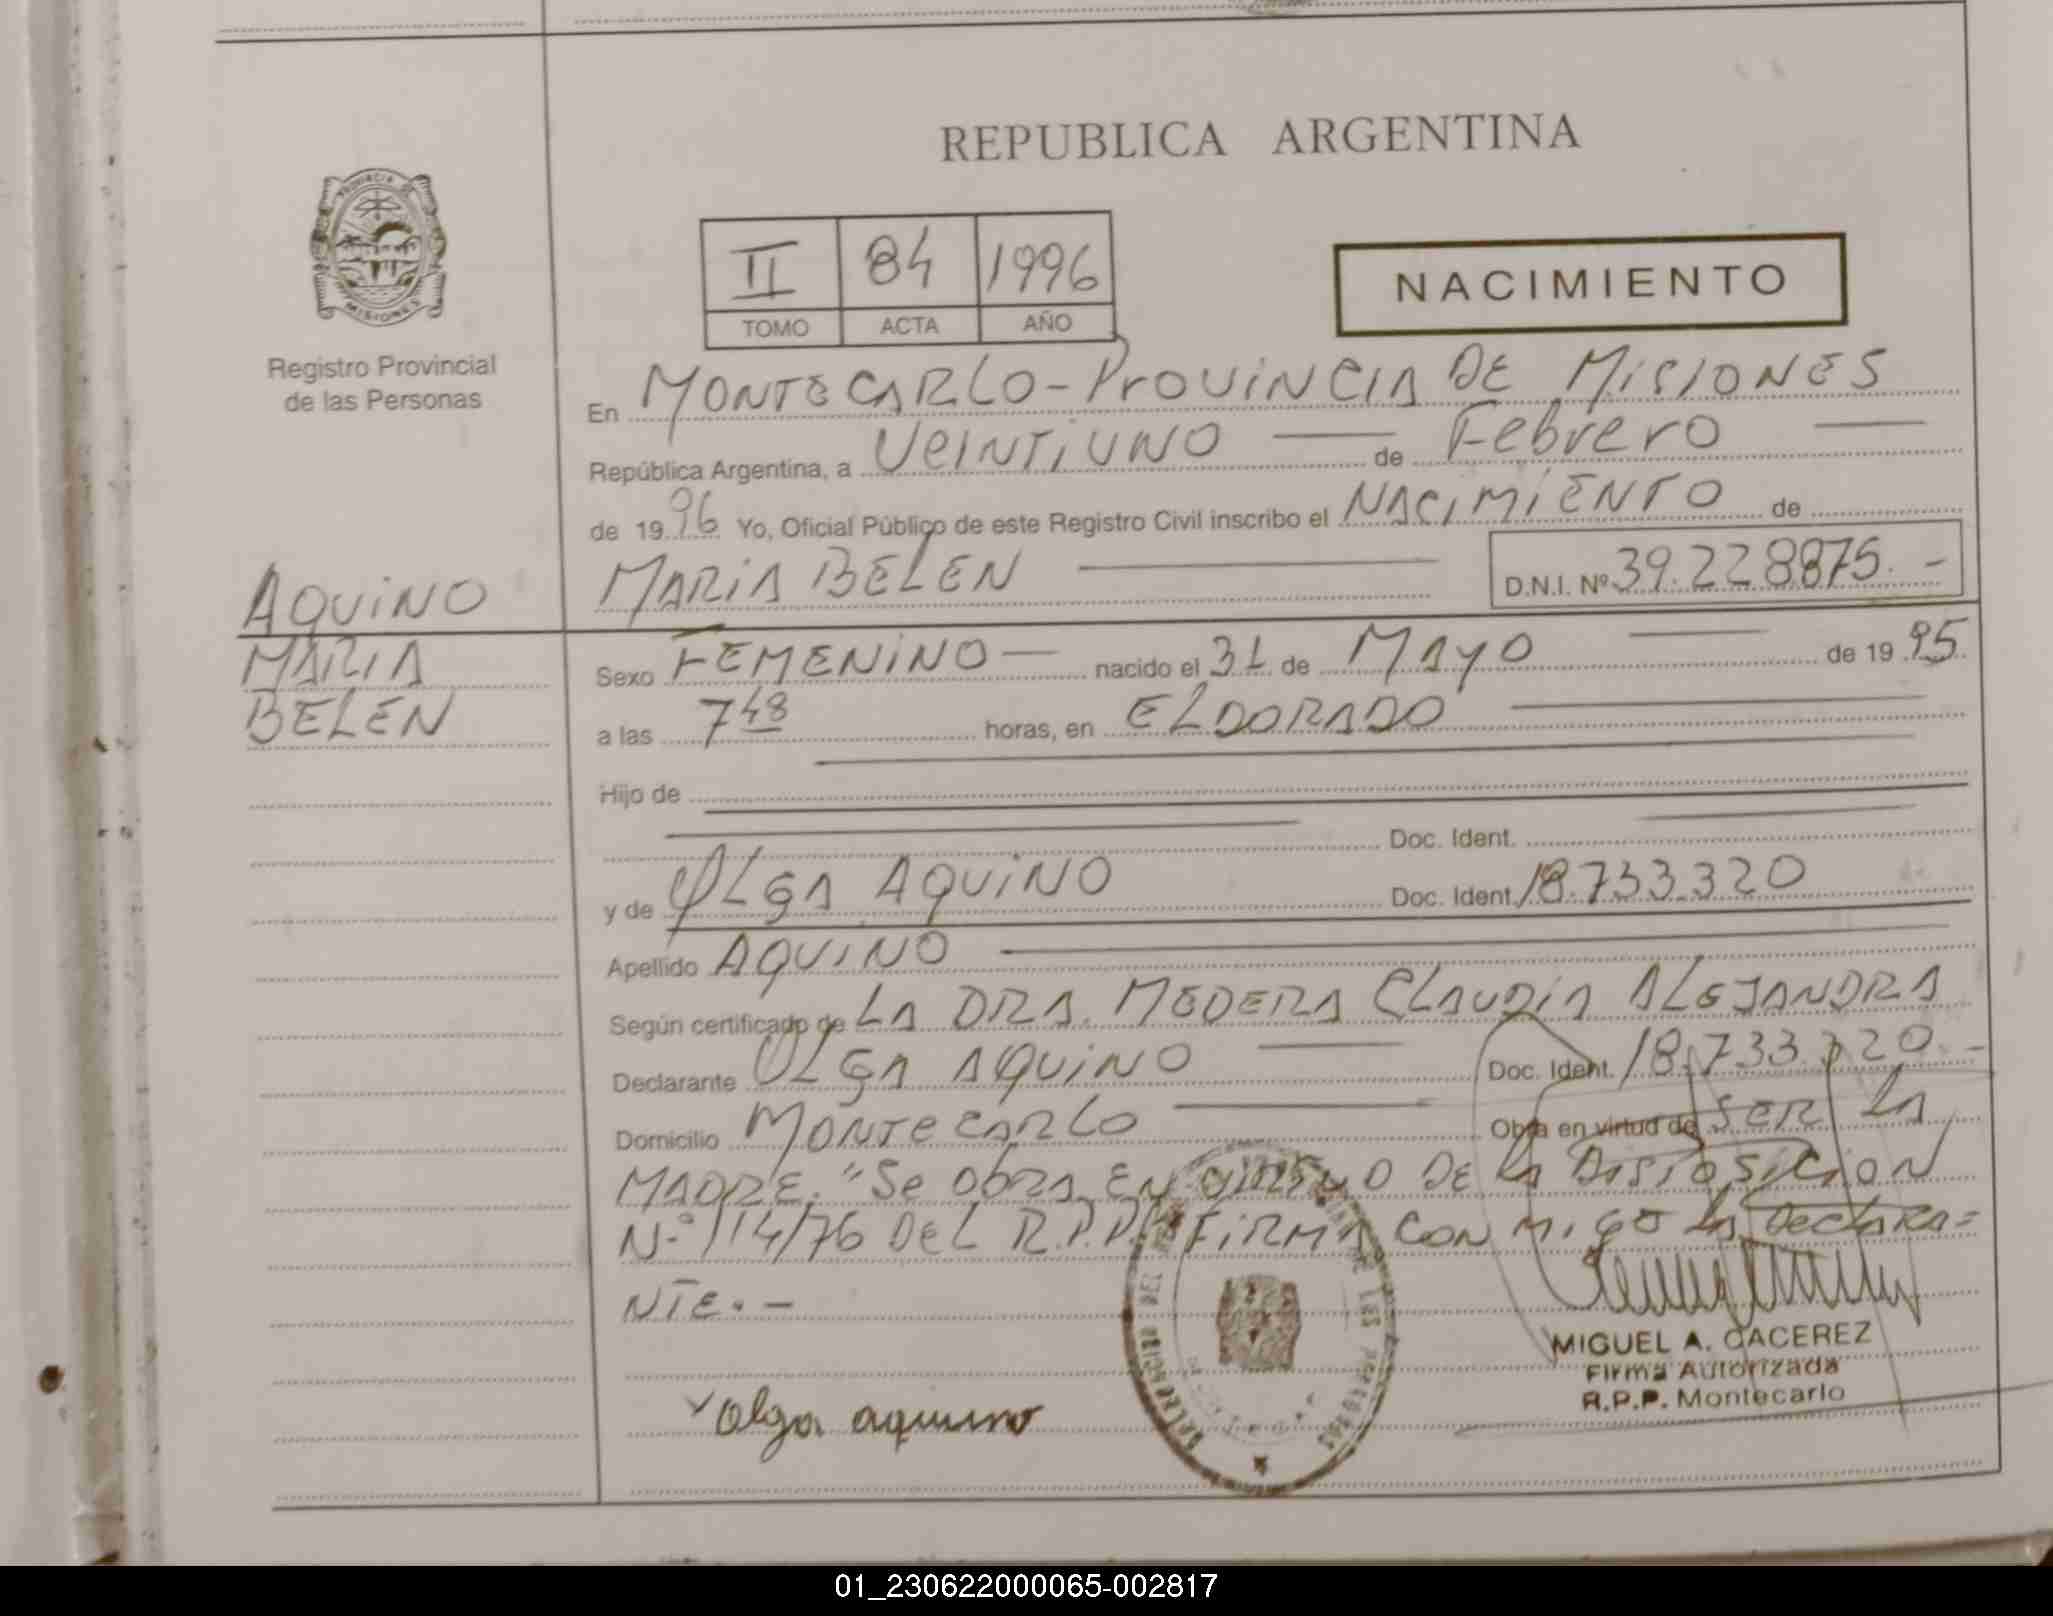 REPUBLICA ARGENTINA
PROVINCIA DE
MISIONES
Registro Provincial
de las Personas
II 84 1996
TOMO ACTA AÑO
NACIMIENTO
En MONTECARLO - PROVINCIA DE MISIONES
República Argentina, a VEINTIUNO de Febrero
de 1996 Yo, Oficial Público de este Registro Civil inscribo el NACIMIENTO de
MARIA BELEN D.N.I. Nº 39.228875.-
AQUINO
MARIA
BELEN
Sexo FEMENINO - nacido el 31 de MAYO de 1995
a las 7 48 horas, en ELDORADO
Hijo de
Doc. Ident.
y de OLGA AQUINO Doc. Ident. 18.733.320
Apellido AQUINO
Según certificado de LA DRA. MEDERA CLAUDIA ALEJANDRA
Declarante OLGA AQUINO Doc. Ident. 18.733.320.-
Domicilio MONTECARLO Obra en virtud de SER LA
MADRE. "Se obra EN VIRTUD DE LA DISPOSICION
N.º 114/76 DEL R.P.P. FIRMA CONMIGO LA DECLARA=
NTE.-
Olga aquino
MIGUEL A. CACEREZ
Firma Autorizada
R.P.P. Montecarlo
01_230622000065-002817